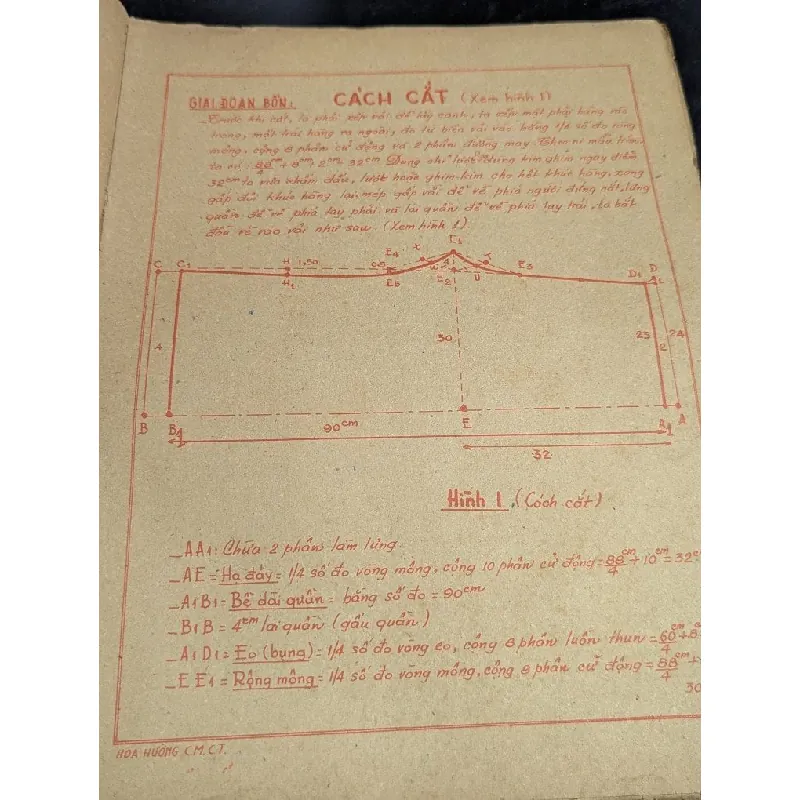 GIAI ĐOẠN BỐN: CÁCH CẮT (Xem hình 1)
Trước khi cắt, ta phải xếp vải để lấy canh, ta xếp mặt phải hàng vào
trong, mặt trái hàng ra ngoài, đo từ biên vải vào bằng 1/4 số đo vòng
mông, cộng 8 phân cử động và 2 phân đường may
88cm + 8cm + 2cm = 32cm Dùng chỉ lược kim ghim ngay điểm
32cm ta vừa chấm dấu, lược hoặc ghim kim cho hết khúc hàng, xong
gấp đủ khúc hàng lại, mép gấp vải để về phía người đứng cắt, lưng
quần để về phía tay phải và lai quần để về phía tay trái, ta bắt
đầu vẽ vào vải như sau (Xem hình 1).
E1
E4 X J
C C1 H 1,50 0,5 E3 D1 D
H1 E5 E2 U
4 30 23 2 24
B B1 E A1 A
90cm
32
Hình 1. (Cách cắt)
_ AA1: Chừa 2 phân làm lưng.
_ AE = Hạ đáy = 1/4 số đo vòng mông, cộng 10 phân cử động = 88cm/4 + 10cm = 32
_ A1B1 = Bề dài quần = bằng số đo = 90cm
_ B1B = 4cm lai quần (gấu quần)
_ A1D1 = Eo (bụng) = 1/4 số đo vòng eo, cộng 8 phân luồn thun = 60cm/4 + 8
_ EE1 = Rộng mông = 1/4 số đo vòng mông, cộng 8 phân cử động = 88cm/4 +
30
HOA HƯỜNG C.M.C.T.